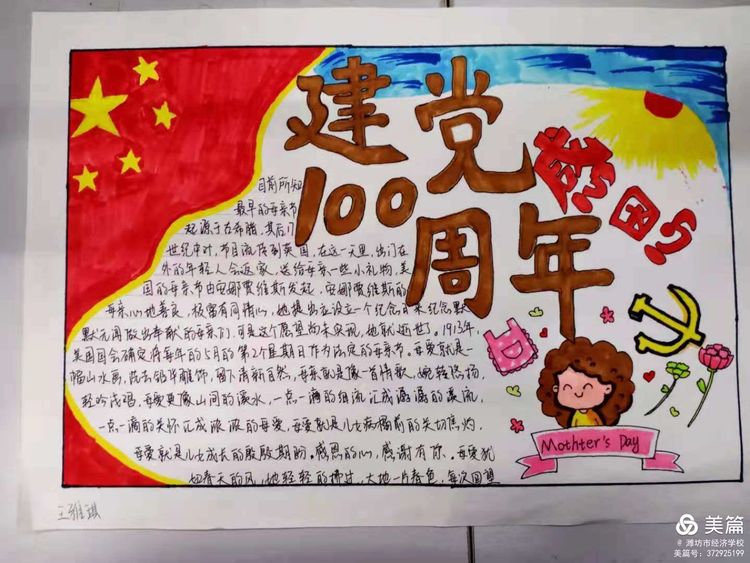 建党
100
周年
感恩
目前所知
最早的母亲节
起源于古希腊，其后17
世纪中叶，节日流传到英国，在这一天里，出门在
外的年轻人会返家，送给母亲一些小礼物，美
国的母亲节由安娜贾维斯发起，安娜贾维斯的
母亲心地善良，极富有同情心，她提出应设立一个纪念日来纪念默
默无闻做出奉献的母亲们，可是这个愿望尚未实现，她就逝世了。1913年，
美国国会确定将每年的5月的第2个星期日作为法定的母亲节。母爱就是一
幅山水画，洗去铅华雕饰，留下清新自然，母亲就是像一首情歌，婉转悠扬，
轻吟浅唱，母爱更像山间的溪水，一点一滴的细流汇成涓涓的溪流，
一点一滴的关怀汇成浓浓的母爱，母爱就是儿女病榻前的关切焦灼，
母爱就是儿女成长的殷殷期盼。感恩的心，感谢有你。母爱犹
如春天的风，她轻轻的拂过，大地一片春色，每次回望
Mothter's Day
王雅琪
美篇
@潍坊市经济学校
美篇号：372925199